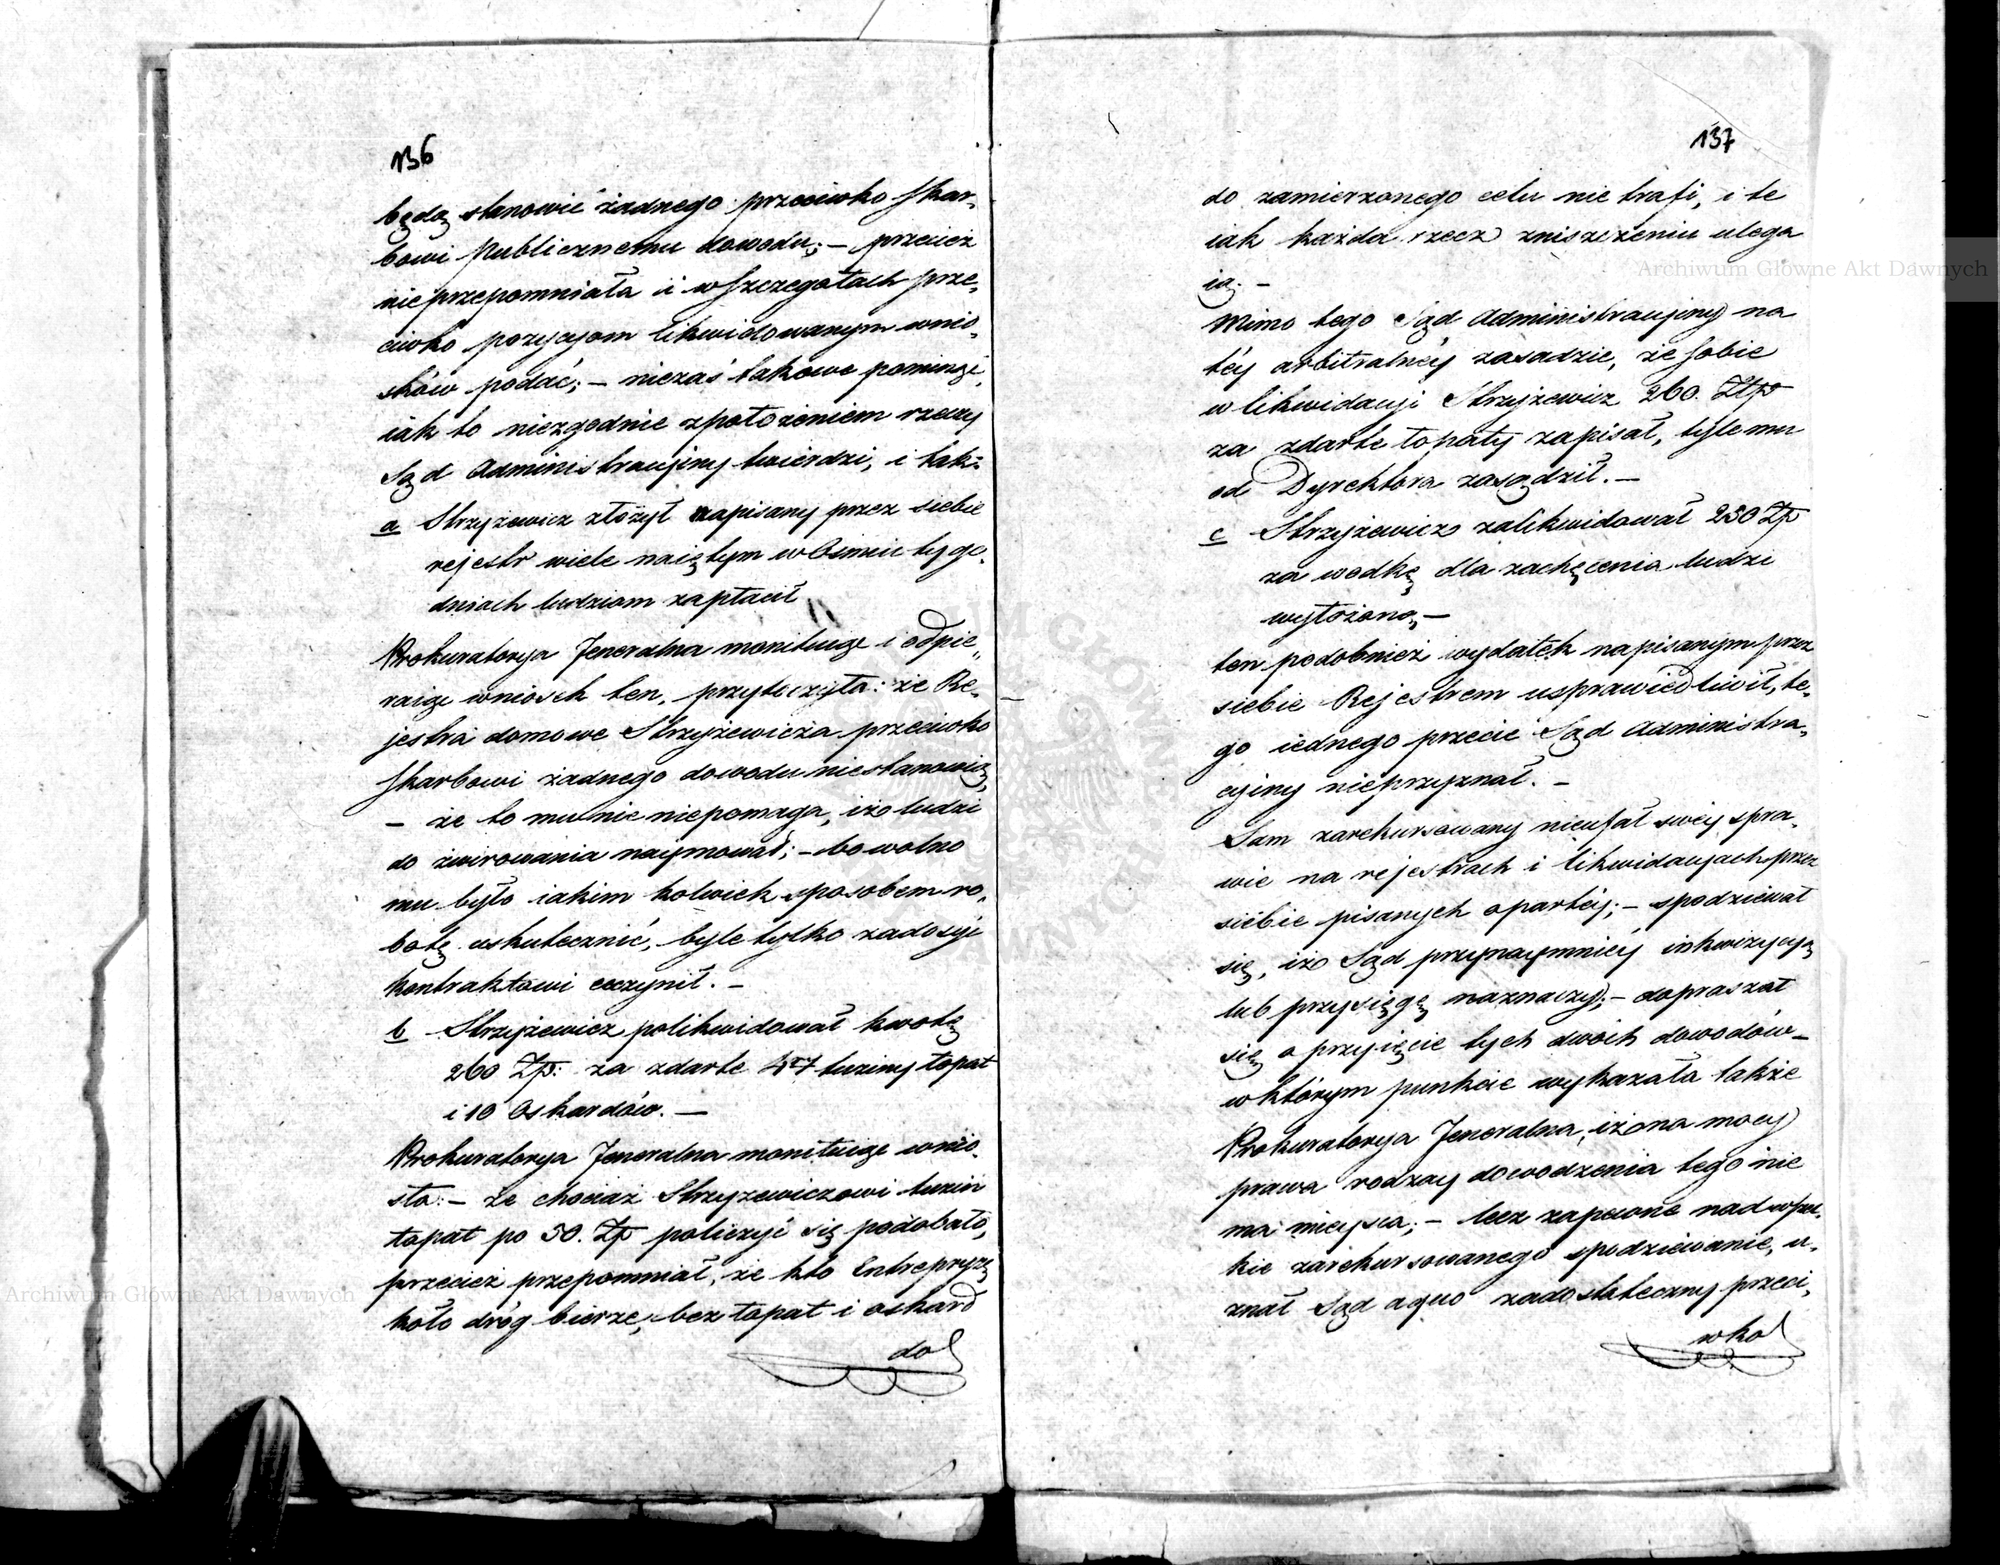 136
będą stanowić żadnego przeciwko Skar-
bowi Publicznemu dowodu; — przecież
nieprzepomniała i w szczegołach prze-
ciwko pozycyom likwidowanym wnio-
sków podać; — niezaś takowe pominąć,
iak to niezgodnie zpołożeniem rzeczy
Sąd Administracyiny twierdzi, i tak:
a Strzyżewicz złożył napisany przez siebie
rejestr wiele naiętym w Ośmiu tygo-
dniach ludziom zapłacił
Prokuratorya Jeneralna monituiąc i odpie-
raiąc wniosek ten, przytoczyła: że Re-
jestra domowe Strzyżewicza przeciwko
Skarbowi żadnego dowodu niestanowią,
— że to mu nic niepomaga, iżo ludzi
do żwirowania naymował; — bo wolno
mu było iakim kolwiek sposobem ro-
botę uskutecznić, byle tylko zadosyć
Kontraktowi uczynił. —
b Strzyżewicz polikwidował kwotę
260 Zp: za zdarte 4 tuziny łopat
i 10 Oskardów. —
Prokuratorya Jeneralna monituiąc wnio-
sła: — że chociaż Strzyżewiczowi tuzin
łopat po 50. Zp policzyć się podobało,
przecież przepomniał, że kto Entrepryzę
koło dróg bierze, bez łopat i oskard
do
137
do zamierzonego celu nie trafi, i te
iak każda rzecz zniszczeniu ulega
ią. —
Mimo tego Sąd Administracyiny na
téy arbitralnéy zasadzie, że sobie
w likwidacyi Strzyżewicz 260. Złp
za zdarte łopaty zapisał, tyle mu
od Dyrektora zasądził. —
c Strzyżewicz zalikwidował 250 Zp
za wodkę dla zachęcenia ludzi
wyłożoną, —
ten podobnież wydatek napisanym przez
siebie Rejestrem usprawiedliwił, te-
go iednego przecie Sąd Administra-
cyiny nieprzyznał. —
Sam zarekursowany nieufał swéy spra-
wie na rejestrach i likwidacyach przez
siebie pisanych opartéy; — spodziewał
się, iżo Sąd przynaymniéy inkwizycyą
lub przysięgę naznaczy; — dopraszał
się o przyięcie tych dwóch dowodów —
w którym punkcie wykazała także
Prokuratorya Jeneralna, iżo na mocy
prawa rodzay dowodzenia tego nie
ma mieysca; — lecz zapewne nad wszel-
kie zarekursowanego spodziewanie, u-
znał Sąd a quo zadostateczny przeci-
wko
Archiwum Główne Akt Dawnych
Archiwum Główne Akt Dawnych